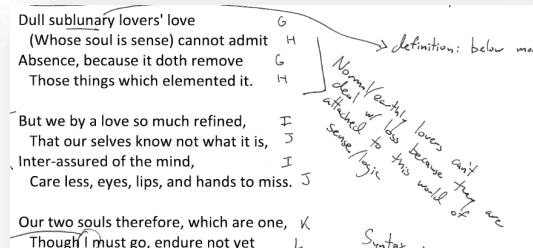 Dull sublunary lovers' love G
(Whose soul is sense) cannot admit H
Absence, because it doth remove G
Those things which elemented it. H
definition: below
Normal/earthly lovers can't
deal w/ loss because they are
attached to this world of
sense/logic
But we by a love so much refined, I
That our selves know not what it is, J
Inter-assured of the mind, I
Care less, eyes, lips, and hands to miss. J
Our two souls therefore, which are one, K
Though I must go, endure not yet
Syntax